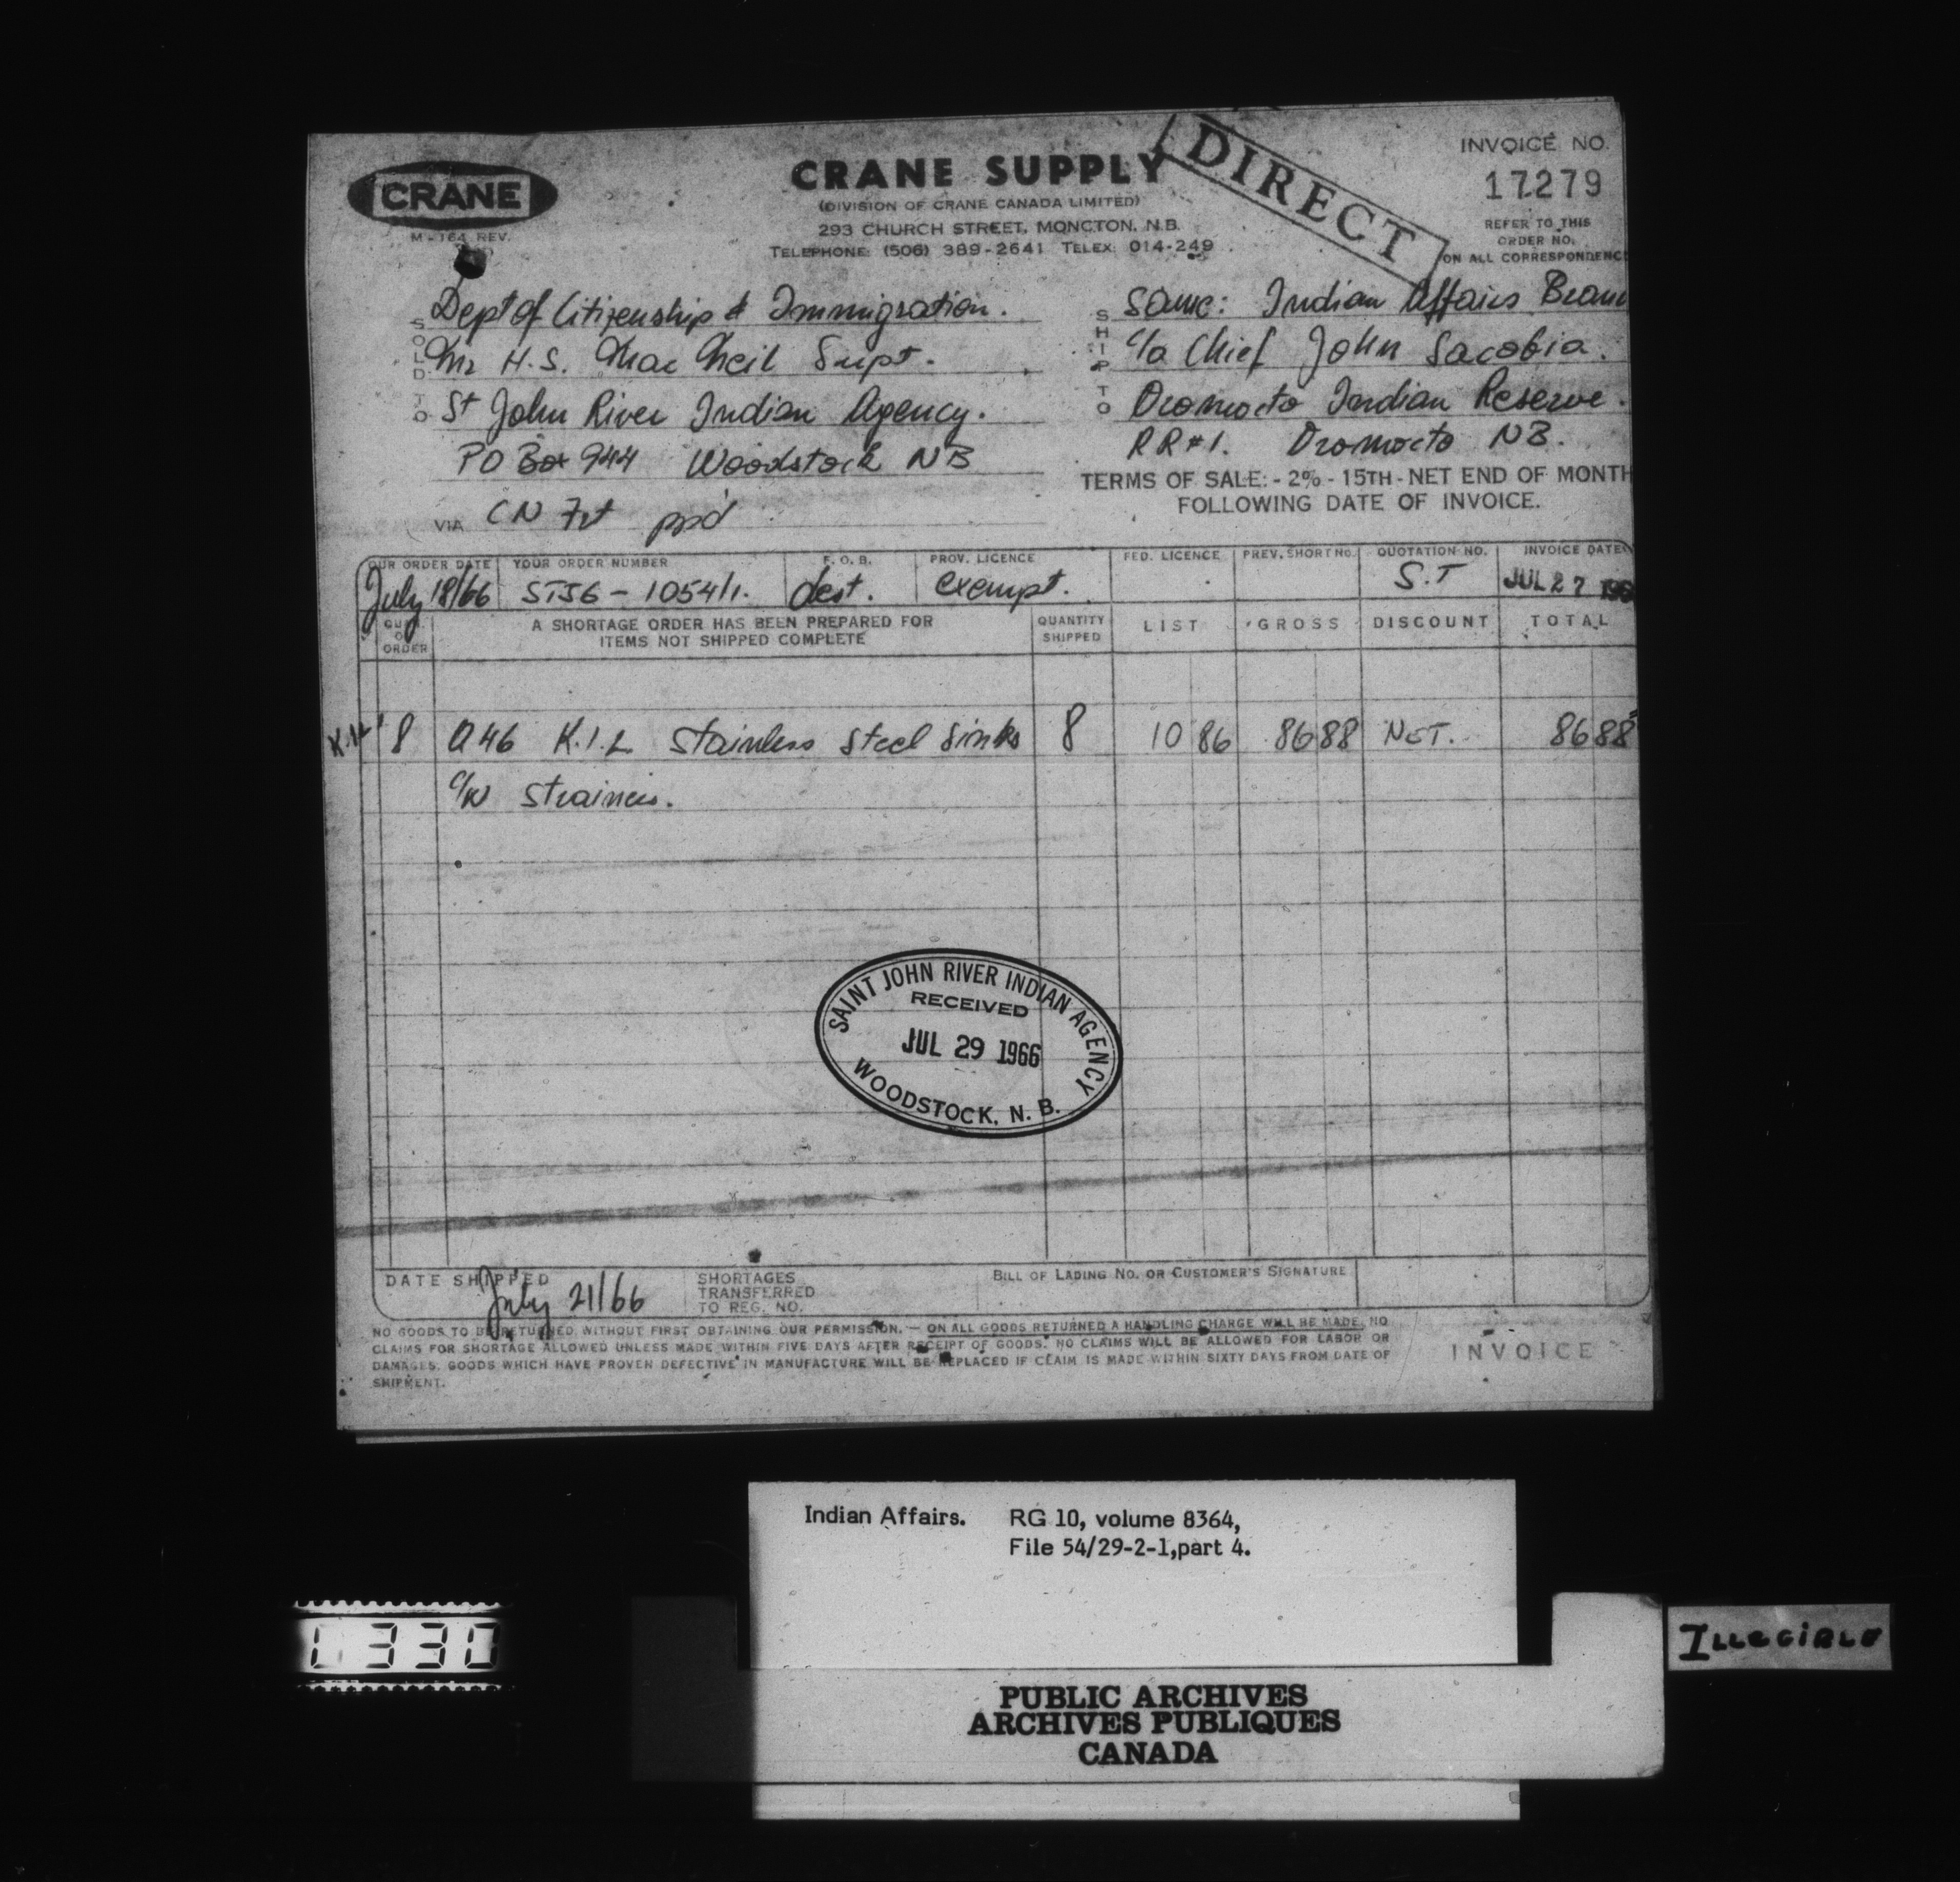 CRANE
M-164 REV.
CRANE SUPPLY
(DIVISION OF CRANE CANADA LIMITED)
293 CHURCH STREET, MONCTON, N.B.
TELEPHONE: (506) 389-2641 TELEX: 014-249
DIRECT
INVOICE NO.
17279
REFER TO THIS
ORDER NO.
ON ALL CORRESPONDENC
SOLD TO
Dept of Citizenship & Immigration.
Mr H.S. MacNeil Supt.
St John River Indian Agency.
PO Box 944 Woodstock NB
VIA CN Frt ppd
SHIP TO
Same: Indian Affairs Bran
c/o Chief John Sacobia.
Oromocto Indian Reserve.
RR#1. Oromocto NB.
TERMS OF SALE:- 2% - 15TH - NET END OF MONTH
FOLLOWING DATE OF INVOICE.
OUR ORDER DATE YOUR ORDER NUMBER F.O.B. PROV. LICENCE FED. LICENCE PREV. SHORT NO. QUOTATION NO. INVOICE DATE
July 18/66 STJ6-1054/1. dest. exempt. S.T JUL 27
QUAN. ORDER A SHORTAGE ORDER HAS BEEN PREPARED FOR QUANTITY LIST GROSS DISCOUNT TOTAL
ITEMS NOT SHIPPED COMPLETE SHIPPED
8 A46 K.I.L Stainless Steel Sinks 8 10 86 86 88 NET. 86 88
c/w Strainers.
SAINT JOHN RIVER INDIAN AGENCY
RECEIVED
JUL 29 1966
WOODSTOCK, N. B.
DATE SHIPPED July 21/66
SHORTAGES
TRANSFERRED
TO REG. NO.
BILL OF LADING NO. OR CUSTOMER'S SIGNATURE
NO GOODS TO BE RETURNED WITHOUT FIRST OBTAINING OUR PERMISSION. — ON ALL GOODS RETURNED A HANDLING CHARGE WILL BE MADE. NO
CLAIMS FOR SHORTAGE ALLOWED UNLESS MADE WITHIN FIVE DAYS AFTER RECEIPT OF GOODS. NO CLAIMS WILL BE ALLOWED FOR LABOR OR
DAMAGES. GOODS WHICH HAVE PROVEN DEFECTIVE IN MANUFACTURE WILL BE REPLACED IF CLAIM IS MADE WITHIN SIXTY DAYS FROM DATE OF
SHIPMENT.
INVOICE
Indian Affairs. RG 10, volume 8364,
File 54/29-2-1,part 4.
330
ILLEGIBLE
PUBLIC ARCHIVES
ARCHIVES PUBLIQUES
CANADA